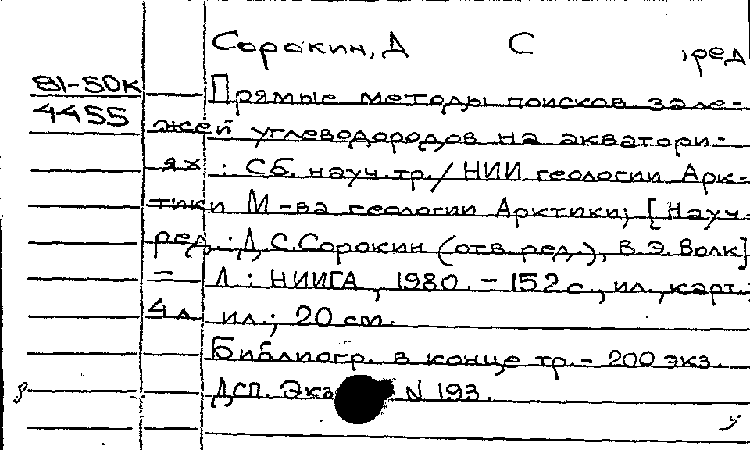 Сорокин, Д С , ред
81-50к
4455
Прямые методы поисков зале-
жей углеводородов на акватори-
ях : Сб. науч. тр. / НИИ геологии Арк-
тики М-ва геологии Арктики; [Науч.
ред.: Д. С. Сорокин (отв. ред.), В. Э. Волк]
= Л. : НИИГА, 1980. - 152 с., ил., карт.;
4 л. ил.; 20 см.
Библиогр. в конце тр. - 200 экз.
ДСП. Экз N 193.